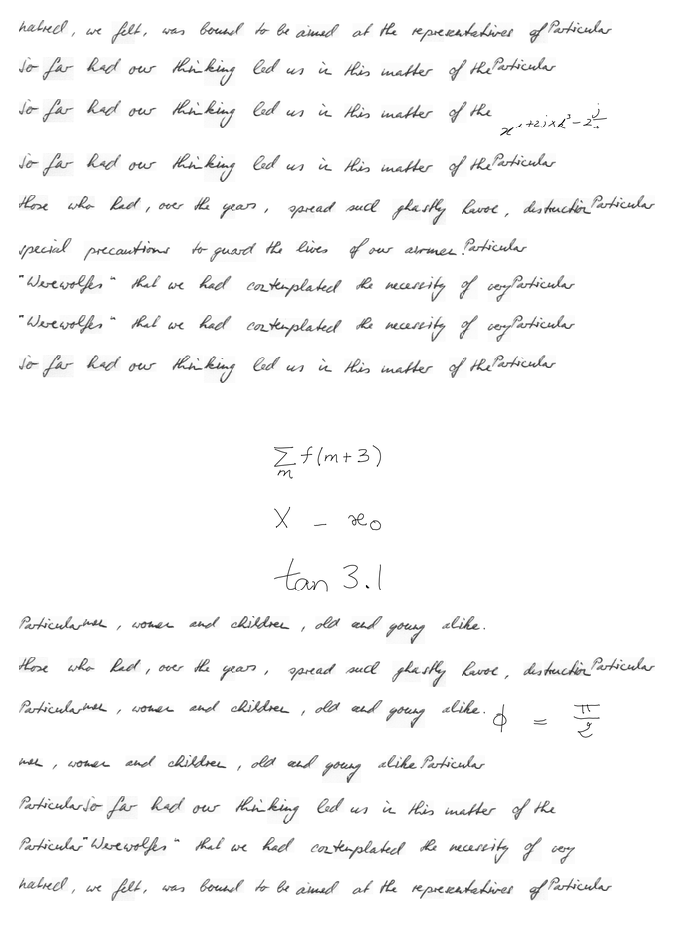 hatred, we felt, was bound to be aimed at the representatives of Particular
So far had our thinking led us in this matter of the Particular
So far had our thinking led us in this matter of the
So far had our thinking led us in this matter of the Particular
those who had, over the years, spread such ghastly havoc, destruction Particular
special precautions to guard the lives of our airmen. Particular
"Werewolfes" that we had contemplated the necessity of very Particular
"Werewolfes" that we had contemplated the necessity of very Particular
So far had our thinking led us in this matter of the Particular
∑_m f(m+3)
X - x_0
tan 3.1
Particular men, women and children, old and young alike.
those who had, over the years, spread such ghastly havoc, destruction Particular
Particular men, women and children, old and young alike. ϕ = π/2
men, women and children, old and young alike Particular
Particular So far had our thinking led us in this matter of the
Particular "Werewolfes" that we had contemplated the necessity of very
hatred, we felt, was bound to be aimed at the representatives of Particular